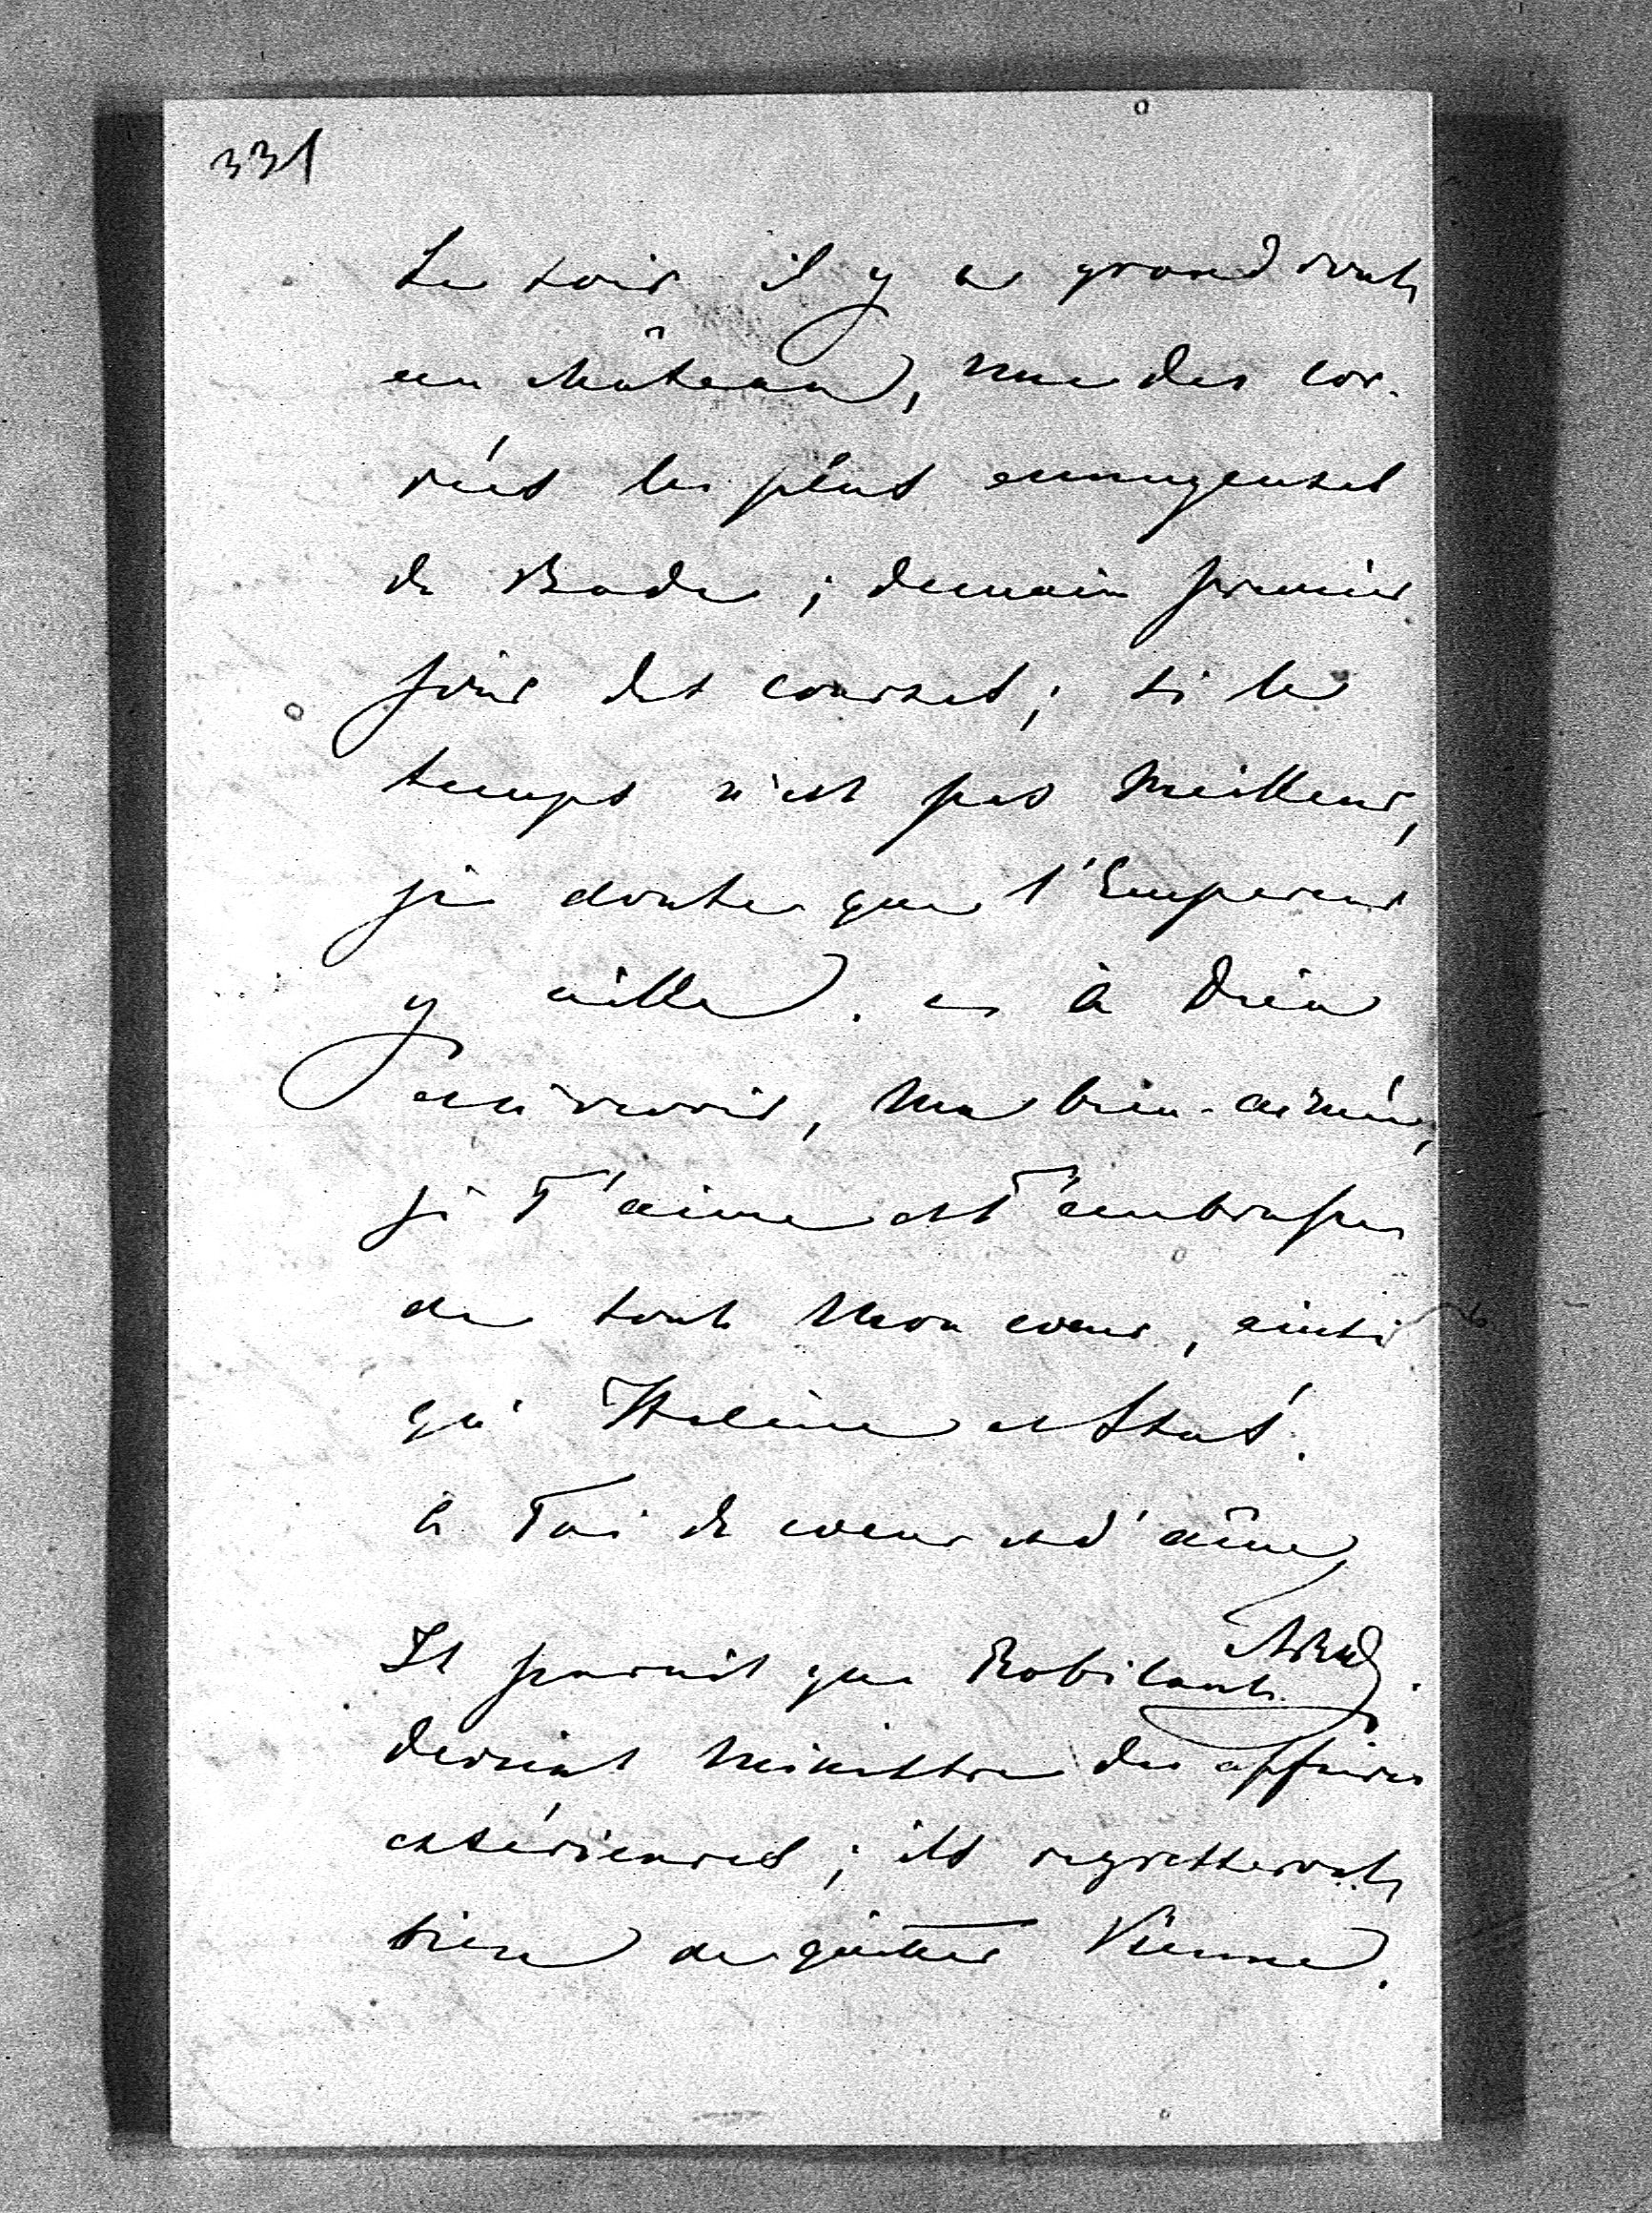 331
Le soir il y a grand rout
au château, une des cor-
vées les plus ennuyeuses
de Bade ; demain premier
jour des courses ; si le
temps n'est pas meilleur,
je doute que l'Empereur
y aille. – à Dieu
au revoir, ma bien-aimée,
je T'aime et T'embrasse
de tout mon coeur, ainsi
qu'Hélène et Stas'.
à Toi de coeur et d'âme
Il parait que Robilant
devient ministre des affaires
extérieures ; ils regretteront
bien de quitter Vienne.